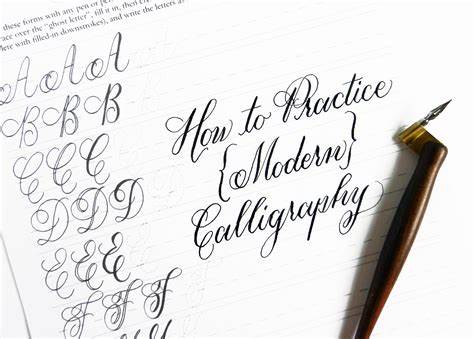 these forms with any pen or
over the "ghost letter", fill it in, then
with filled-in downstrokes), and write the letters
A A A
B B B
C C C
D D D
E E E
F F F
How to Practice
{Modern}
Calligraphy